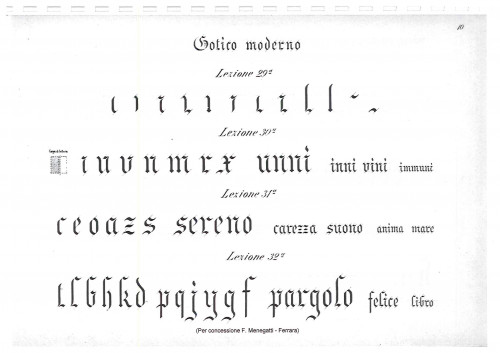 10
Gotico moderno
Lezione 29ª
Lezione 30ª
i n v n m r x unni inni vini immuni
Lezione 31ª
c e o a z s sereno carezza suono anima mare
Lezione 32ª
t l b h k d p q j y g f pargolo felice libro
(Per concessione F. Menegatti - Ferrara)